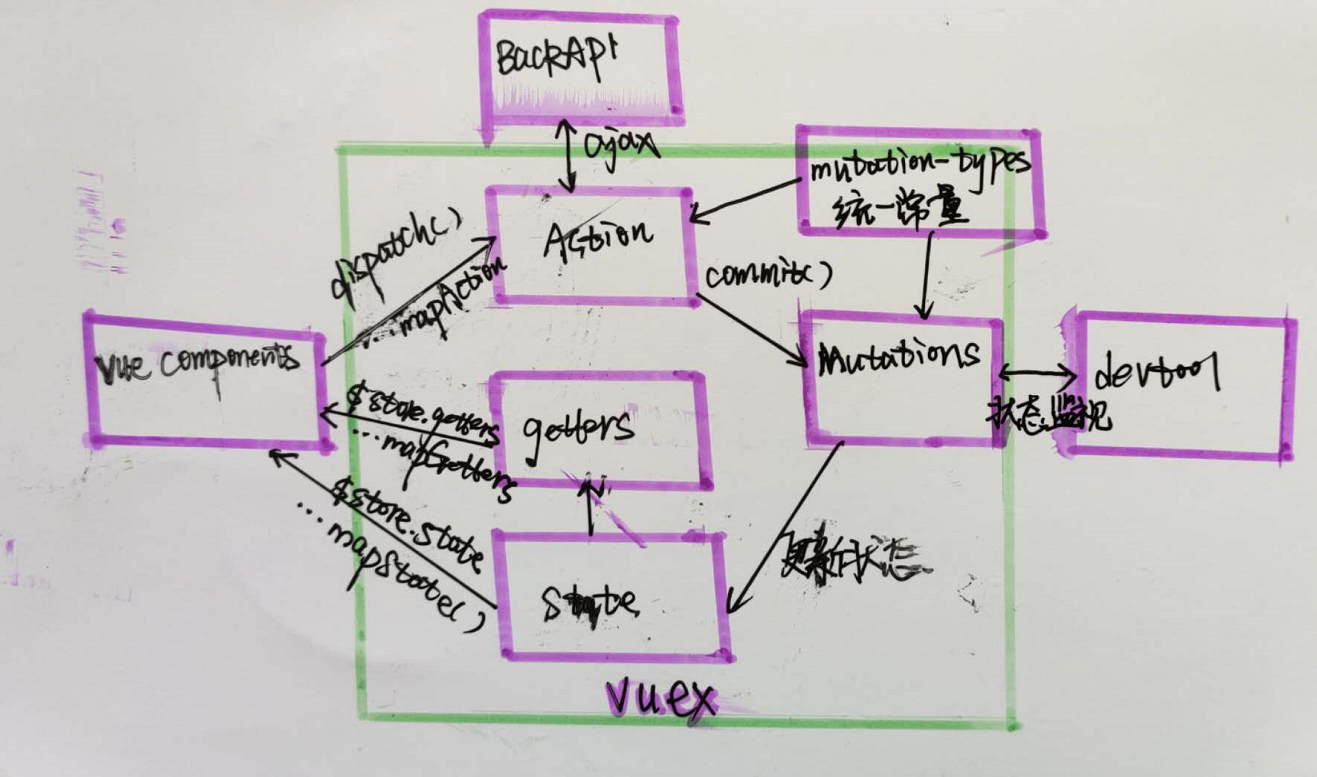 BackAPI
ajax
mutation-types
统一常量
Action
dispatch()
...mapAction
commit()
Vue components
Mutations
devtool
状态监视
$store.getters
...mapGetters
getters
$store.state
...mapState()
state
更新状态
vuex